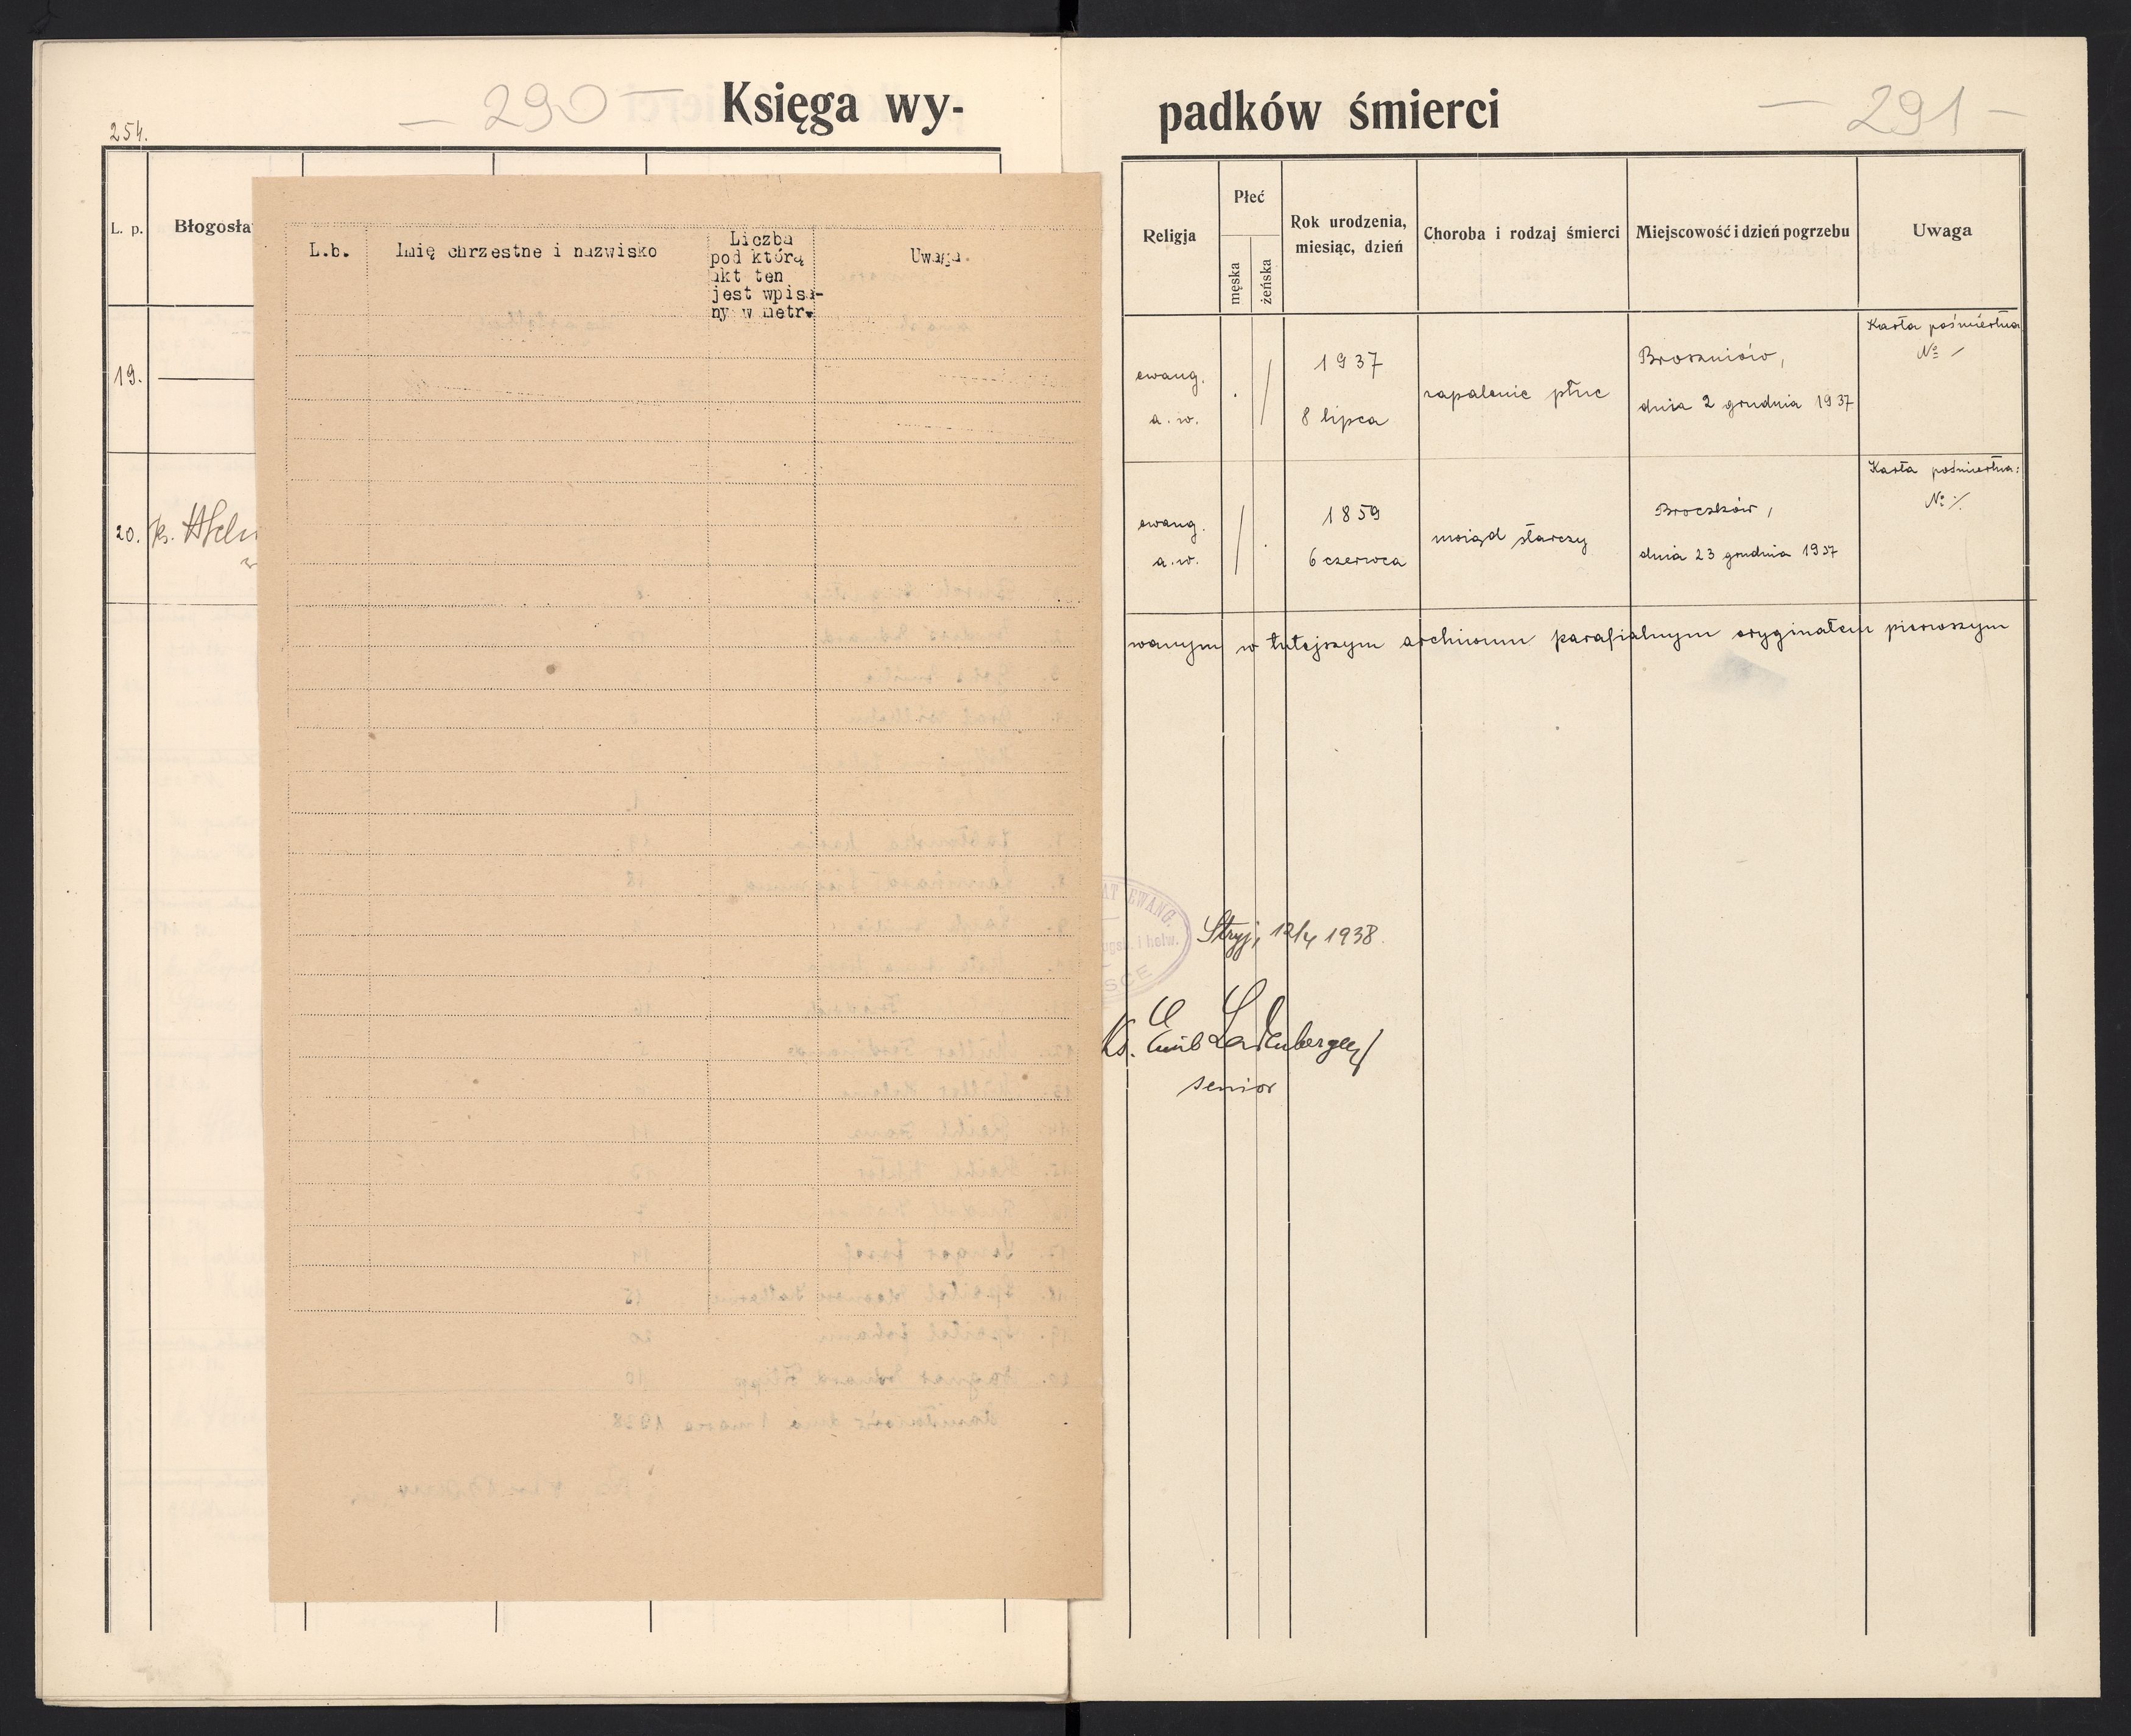 254.
— 290 —
Księga wy-
padków śmierci
— 291 —
L. p.
Błogosła
19.
20.
ks.
L.b.
Imię chrzestne i nazwisko
Liczba
pod którą
akt ten
jest wpisa-
ny w metr.
Uwaga.
Religja
Płeć
męska
żeńska
Rok urodzenia,
miesiąc, dzień
Choroba i rodzaj śmierci
Miejscowość i dzień pogrzebu
Uwaga
ewang.
a. w.
1937
8 lipca
zapalenie płuc
Broszniów,
dnia 2 grudnia 1937
Karta pośmiertna
№ /
ewang.
a. w.
1859
6 czerwca
uwiąd starczy
Broczków,
dnia 23 grudnia 1937
Karta pośmiertna:
№ ./.
wanym w tutejszym archiwum parafialnym oryginałem pierwszym
AT EWANG.
ugsb. i helw.
SCE
Stryj, 12/4 1938.
Ks. Emil Ladenberger
senior